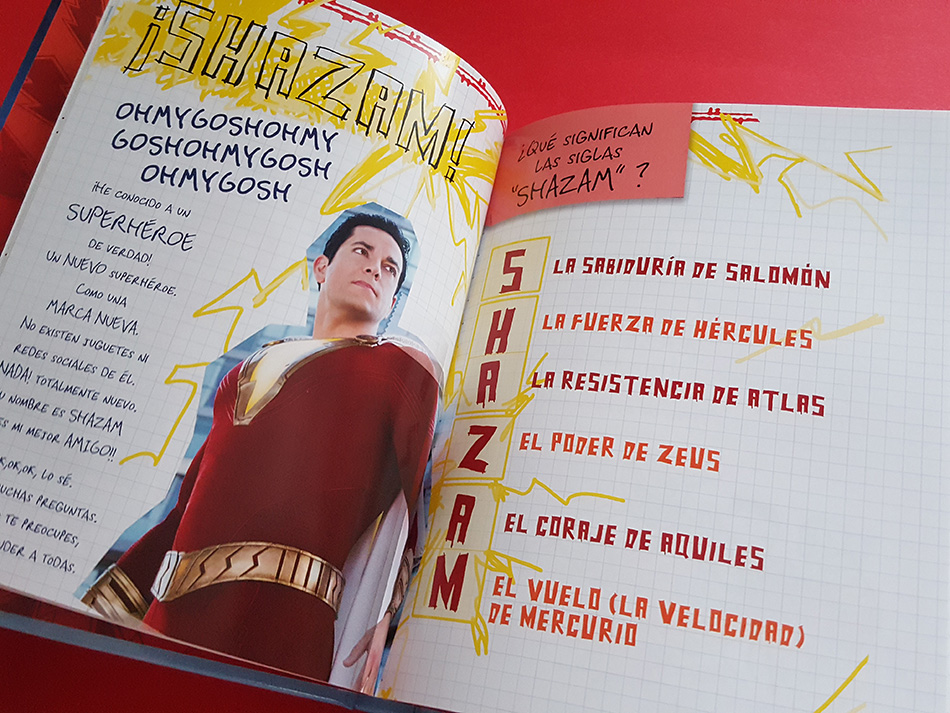 ¡SHAZAM!
OHMYGOSHOHMY
GOSHOHMYGOSH
OHMYGOSH
¡HE CONOCIDO A UN
SUPERHÉROE
DE VERDAD!
UN NUEVO SUPERHÉROE.
COMO UNA
MARCA NUEVA.
NO EXISTEN JUGUETES NI
REDES SOCIALES DE ÉL.
NADA! TOTALMENTE NUEVO.
NOMBRE ES SHAZAM
ES MI MEJOR AMIGO!!
OK, OK, LO SÉ.
MUCHAS PREGUNTAS.
TE PREOCUPES,
A TODAS.
¿QUÉ SIGNIFICAN
LAS SIGLAS
"SHAZAM" ?
S LA SABIDURÍA DE SALOMÓN
H LA FUERZA DE HÉRCULES
A LA RESISTENCIA DE ATLAS
Z EL PODER DE ZEUS
A EL CORAJE DE AQUILES
M EL VUELO (LA VELOCIDAD)
DE MERCURIO